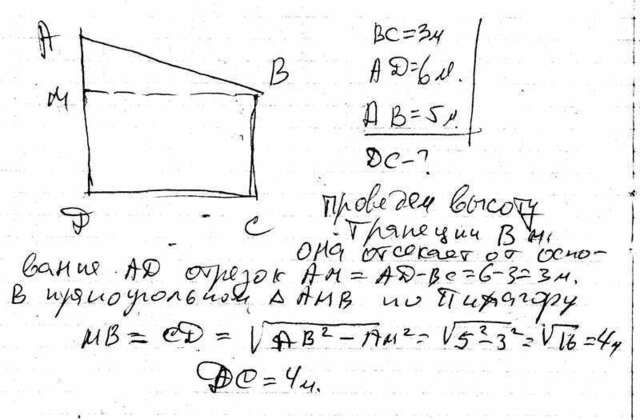 A
B
M
D
C
BC=3м
AD=6м.
AB=5м.
DC-?
проведем высоту
трапеции BM.
она отсекает от осно-
вание AD отрезок AM=AD-BC=6-3=3м.
В прямоугольном △AMB по Пифагору
MB = CD = √AB²-AM² = √5²-3² = √16 = 4м
DC=4м.